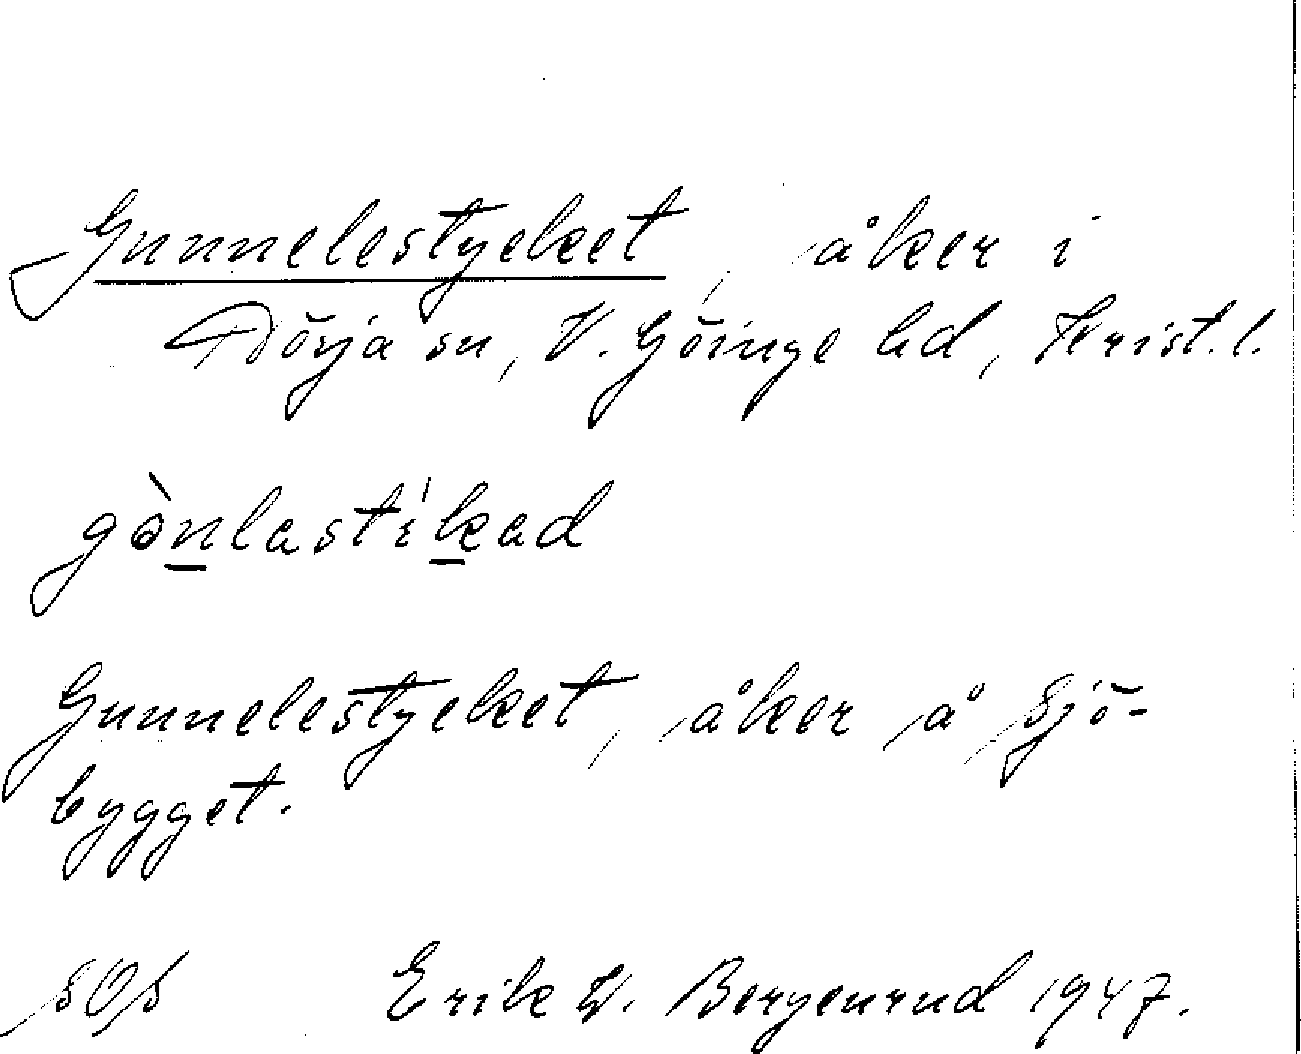 Gunnelestycket, åker i
Dörja sn, V. Göinge hd, Krist. l.
gònlastíkad
Gunnelestycket, åker å Sjö-
bygget.
SOS Erik W. Bergenrud 1947.